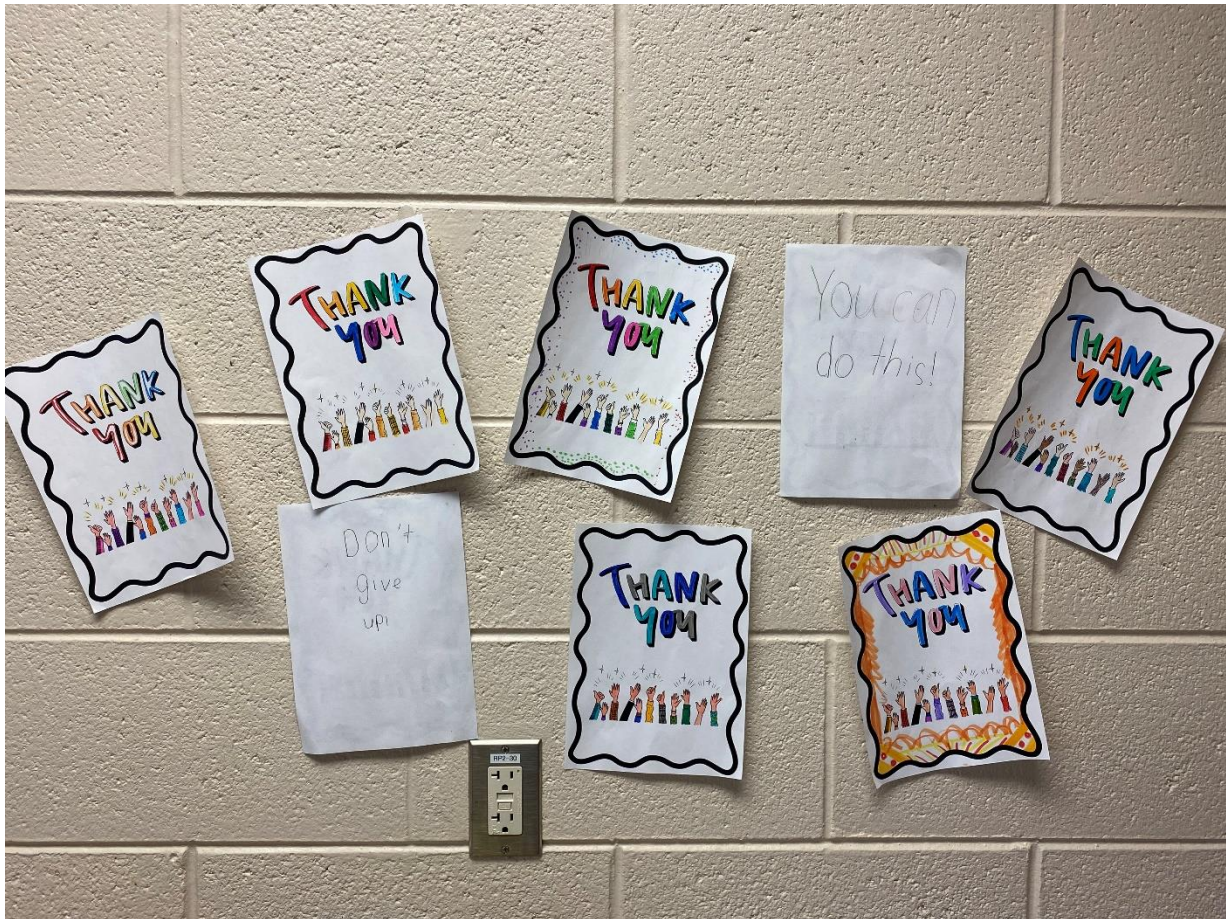 THANK
YOU
THANK
YOU
THANK
YOU
You can
do this!
THANK
YOU
Don't
give
up!
THANK
YOU
THANK
YOU
RP2-30